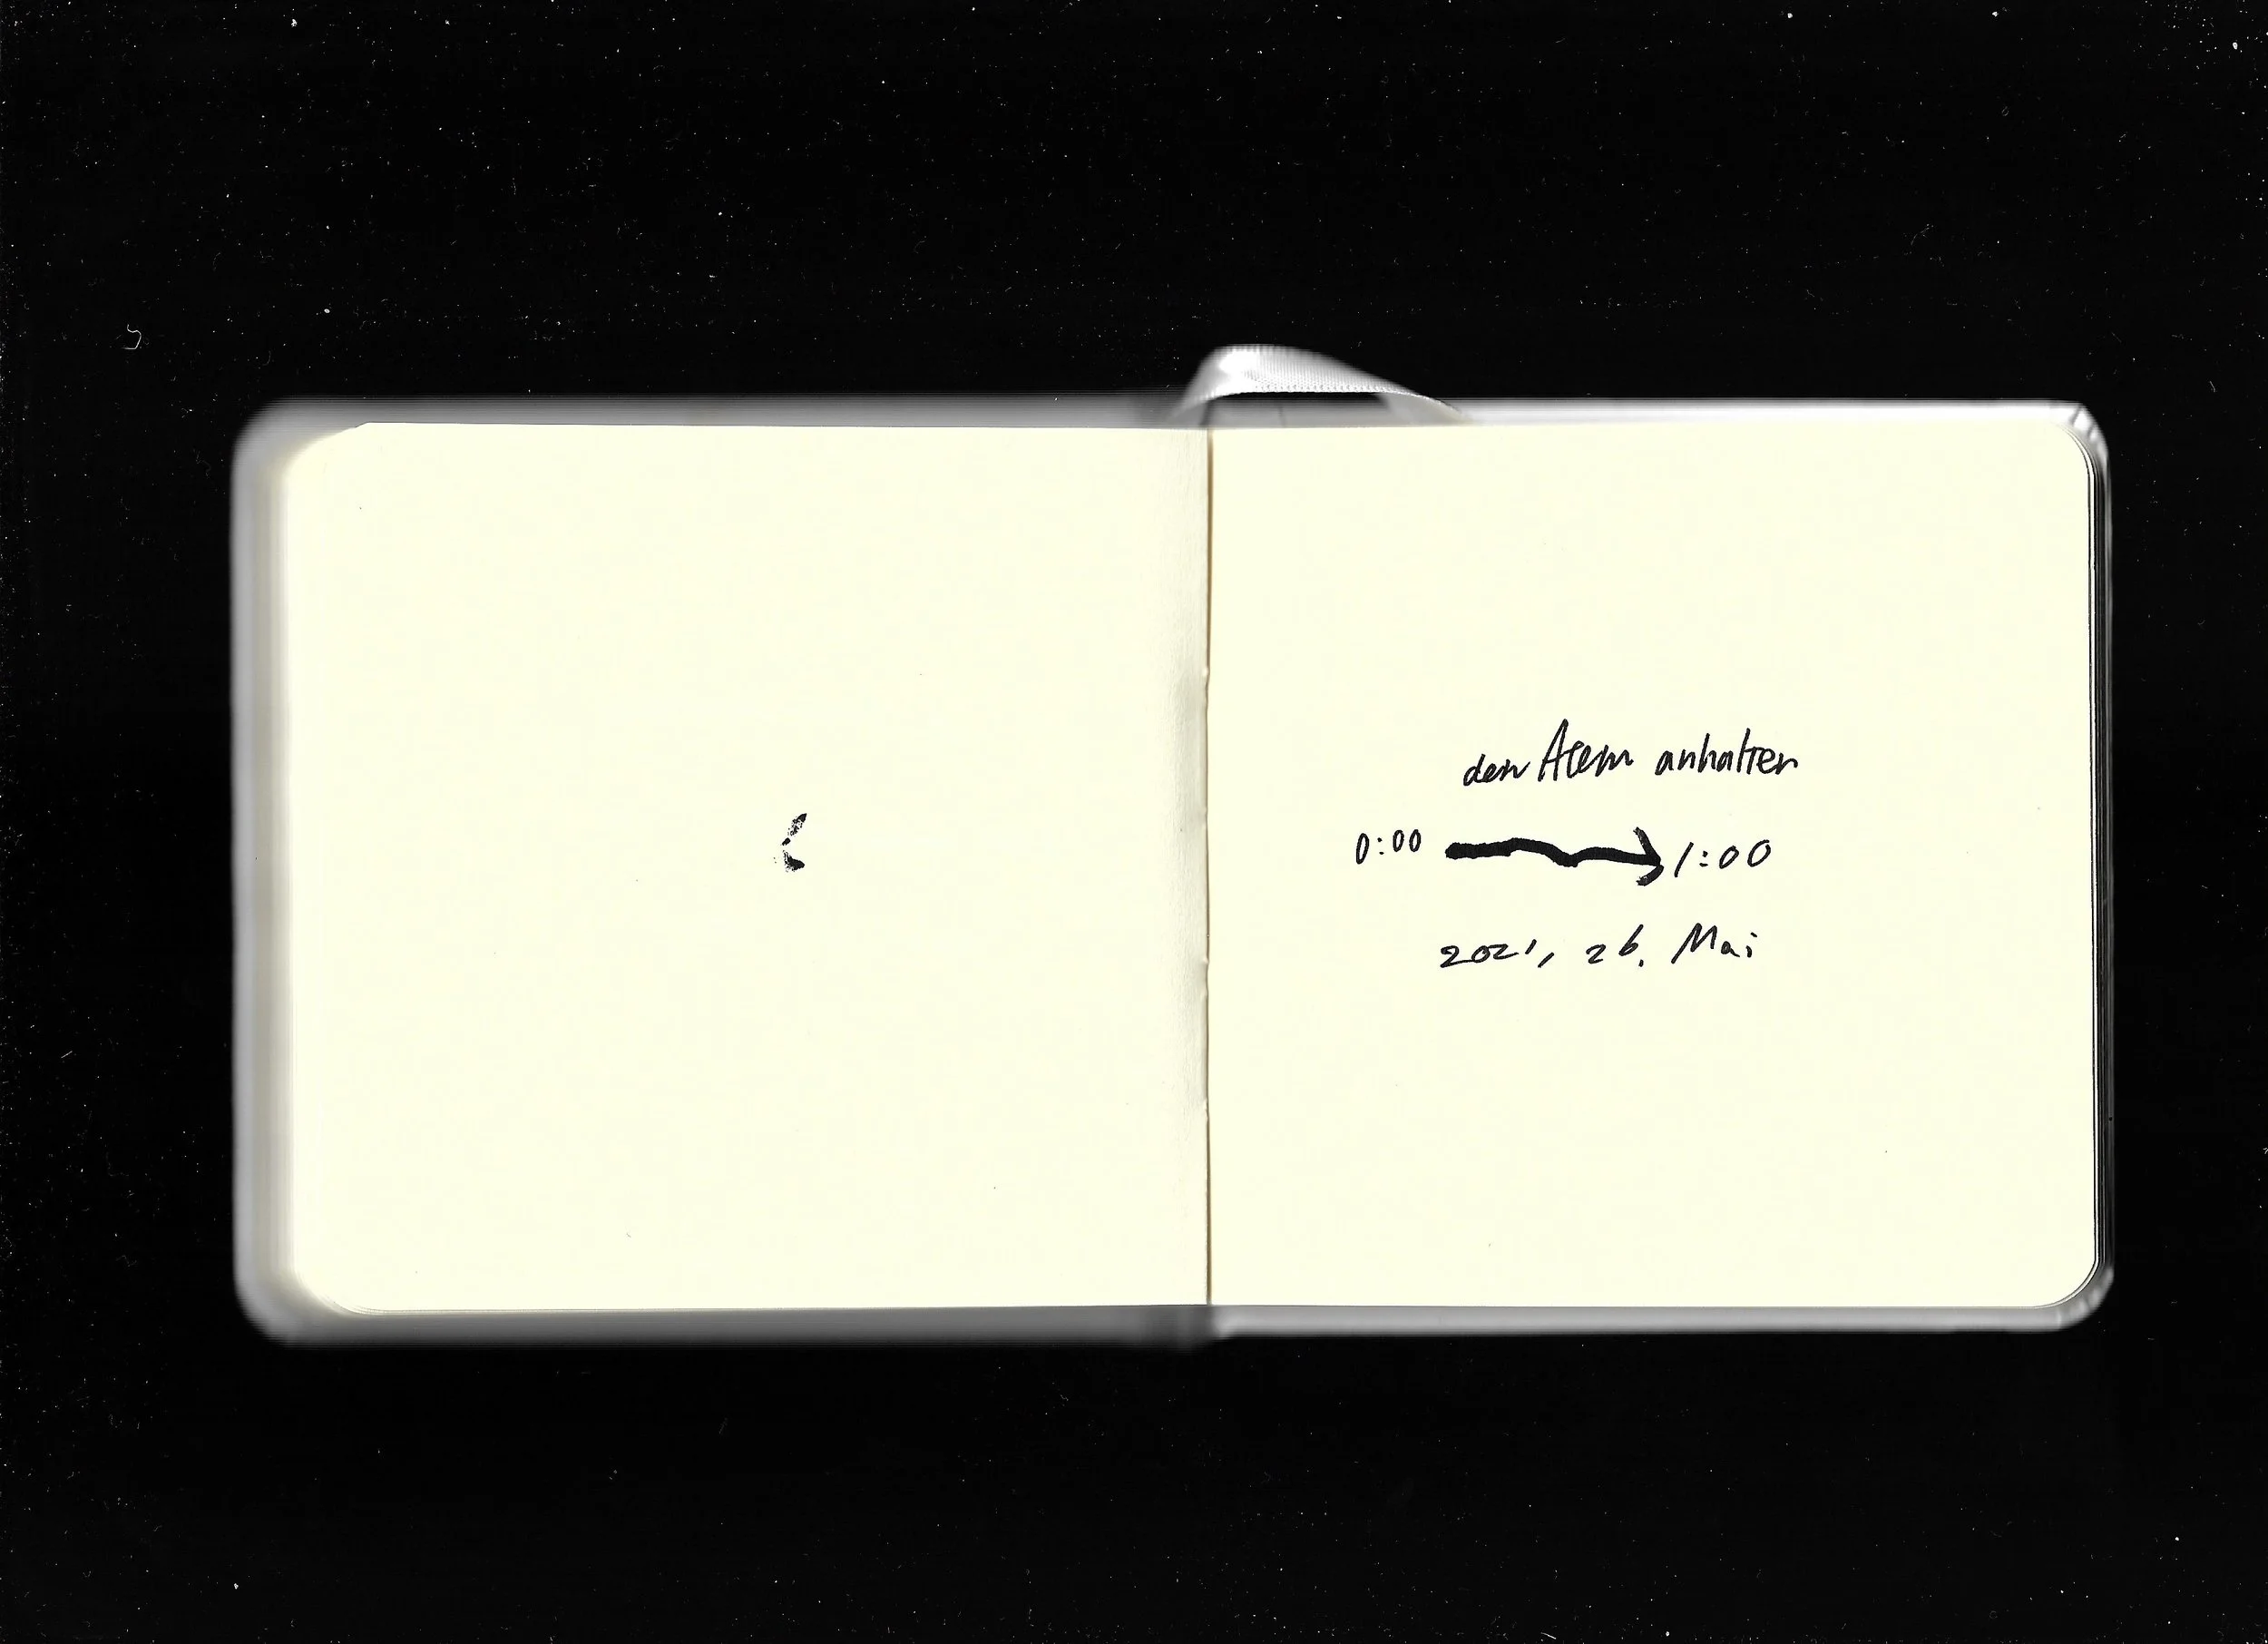 den Atem anhalten
0:00 → 1:00
2021, 26. Mai